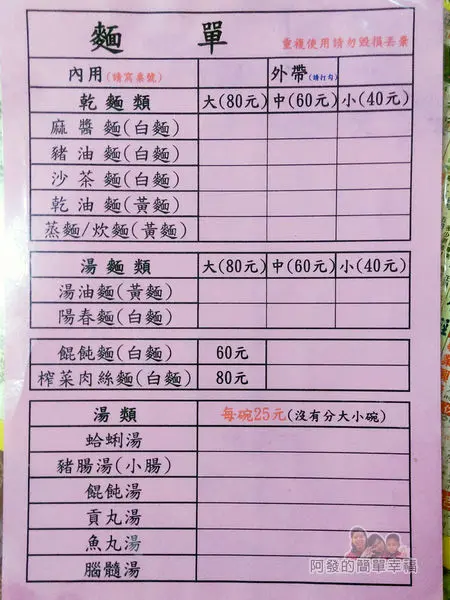 麵 單
重複使用請勿毀損丟棄
內用(請寫桌號) 外帶(請打勾)
乾麵類 大(80元) 中(60元) 小(40元)
麻醬麵(白麵)
豬油麵(白麵)
沙茶麵(白麵)
乾油麵(黃麵)
蒸麵/炊麵(黃麵)
湯麵類 大(80元) 中(60元) 小(40元)
湯油麵(黃麵)
陽春麵(白麵)
餛飩麵(白麵) 60元
榨菜肉絲麵(白麵) 80元
湯類 每碗25元(沒有分大小碗)
蛤蜊湯
豬腸湯(小腸)
餛飩湯
貢丸湯
魚丸湯
腦髓湯
阿發的簡單幸福